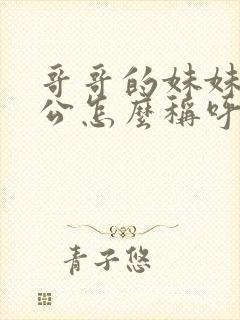 哥哥的妹妹
公怎麼稱呼
青子悠